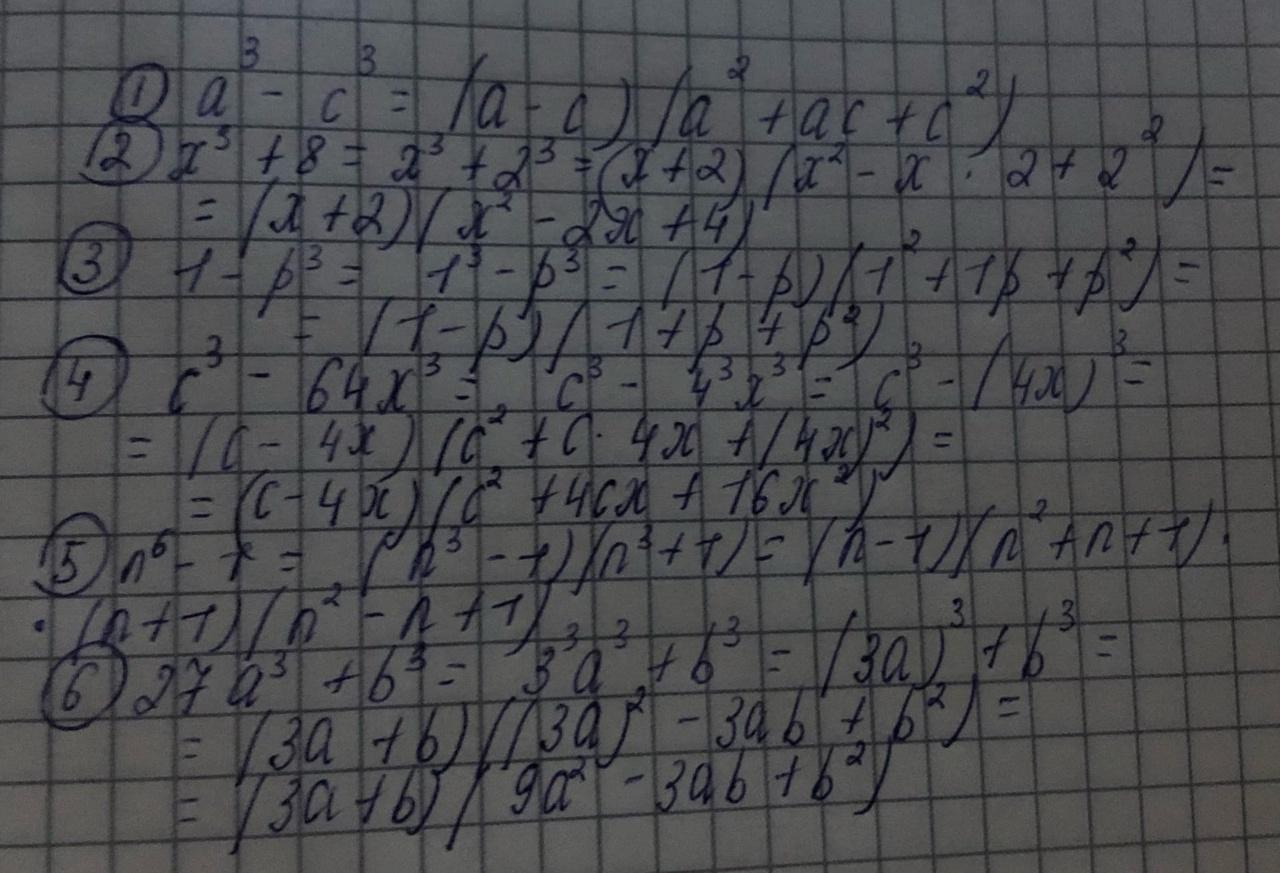 ① a³ - c³ = (a - c) (a² + ac + c²)
② x³ + 8 = x³ + 2³ = (x + 2) (x² - x · 2 + 2²) =
= (x + 2) (x² - 2x + 4)
③ 1 - p³ = 1³ - p³ = (1 - p) (1² + 1p + p²) =
= (1 - p) (1 + p + p²)
④ c³ - 64x³ = c³ - 4³x³ = c³ - (4x)³ =
= (c - 4x) (c² + c · 4x + (4x)²) =
= (c - 4x) (c² + 4cx + 16x²)
⑤ n⁶ - 1 = (n³ - 1) (n³ + 1) = (n - 1) (n² + n + 1) ·
· (n + 1) (n² - n + 1)
⑥ 27a³ + b³ = 3³a³ + b³ = (3a)³ + b³ =
= (3a + b) ((3a)² - 3ab + b²) =
= (3a + b) (9a² - 3ab + b²)